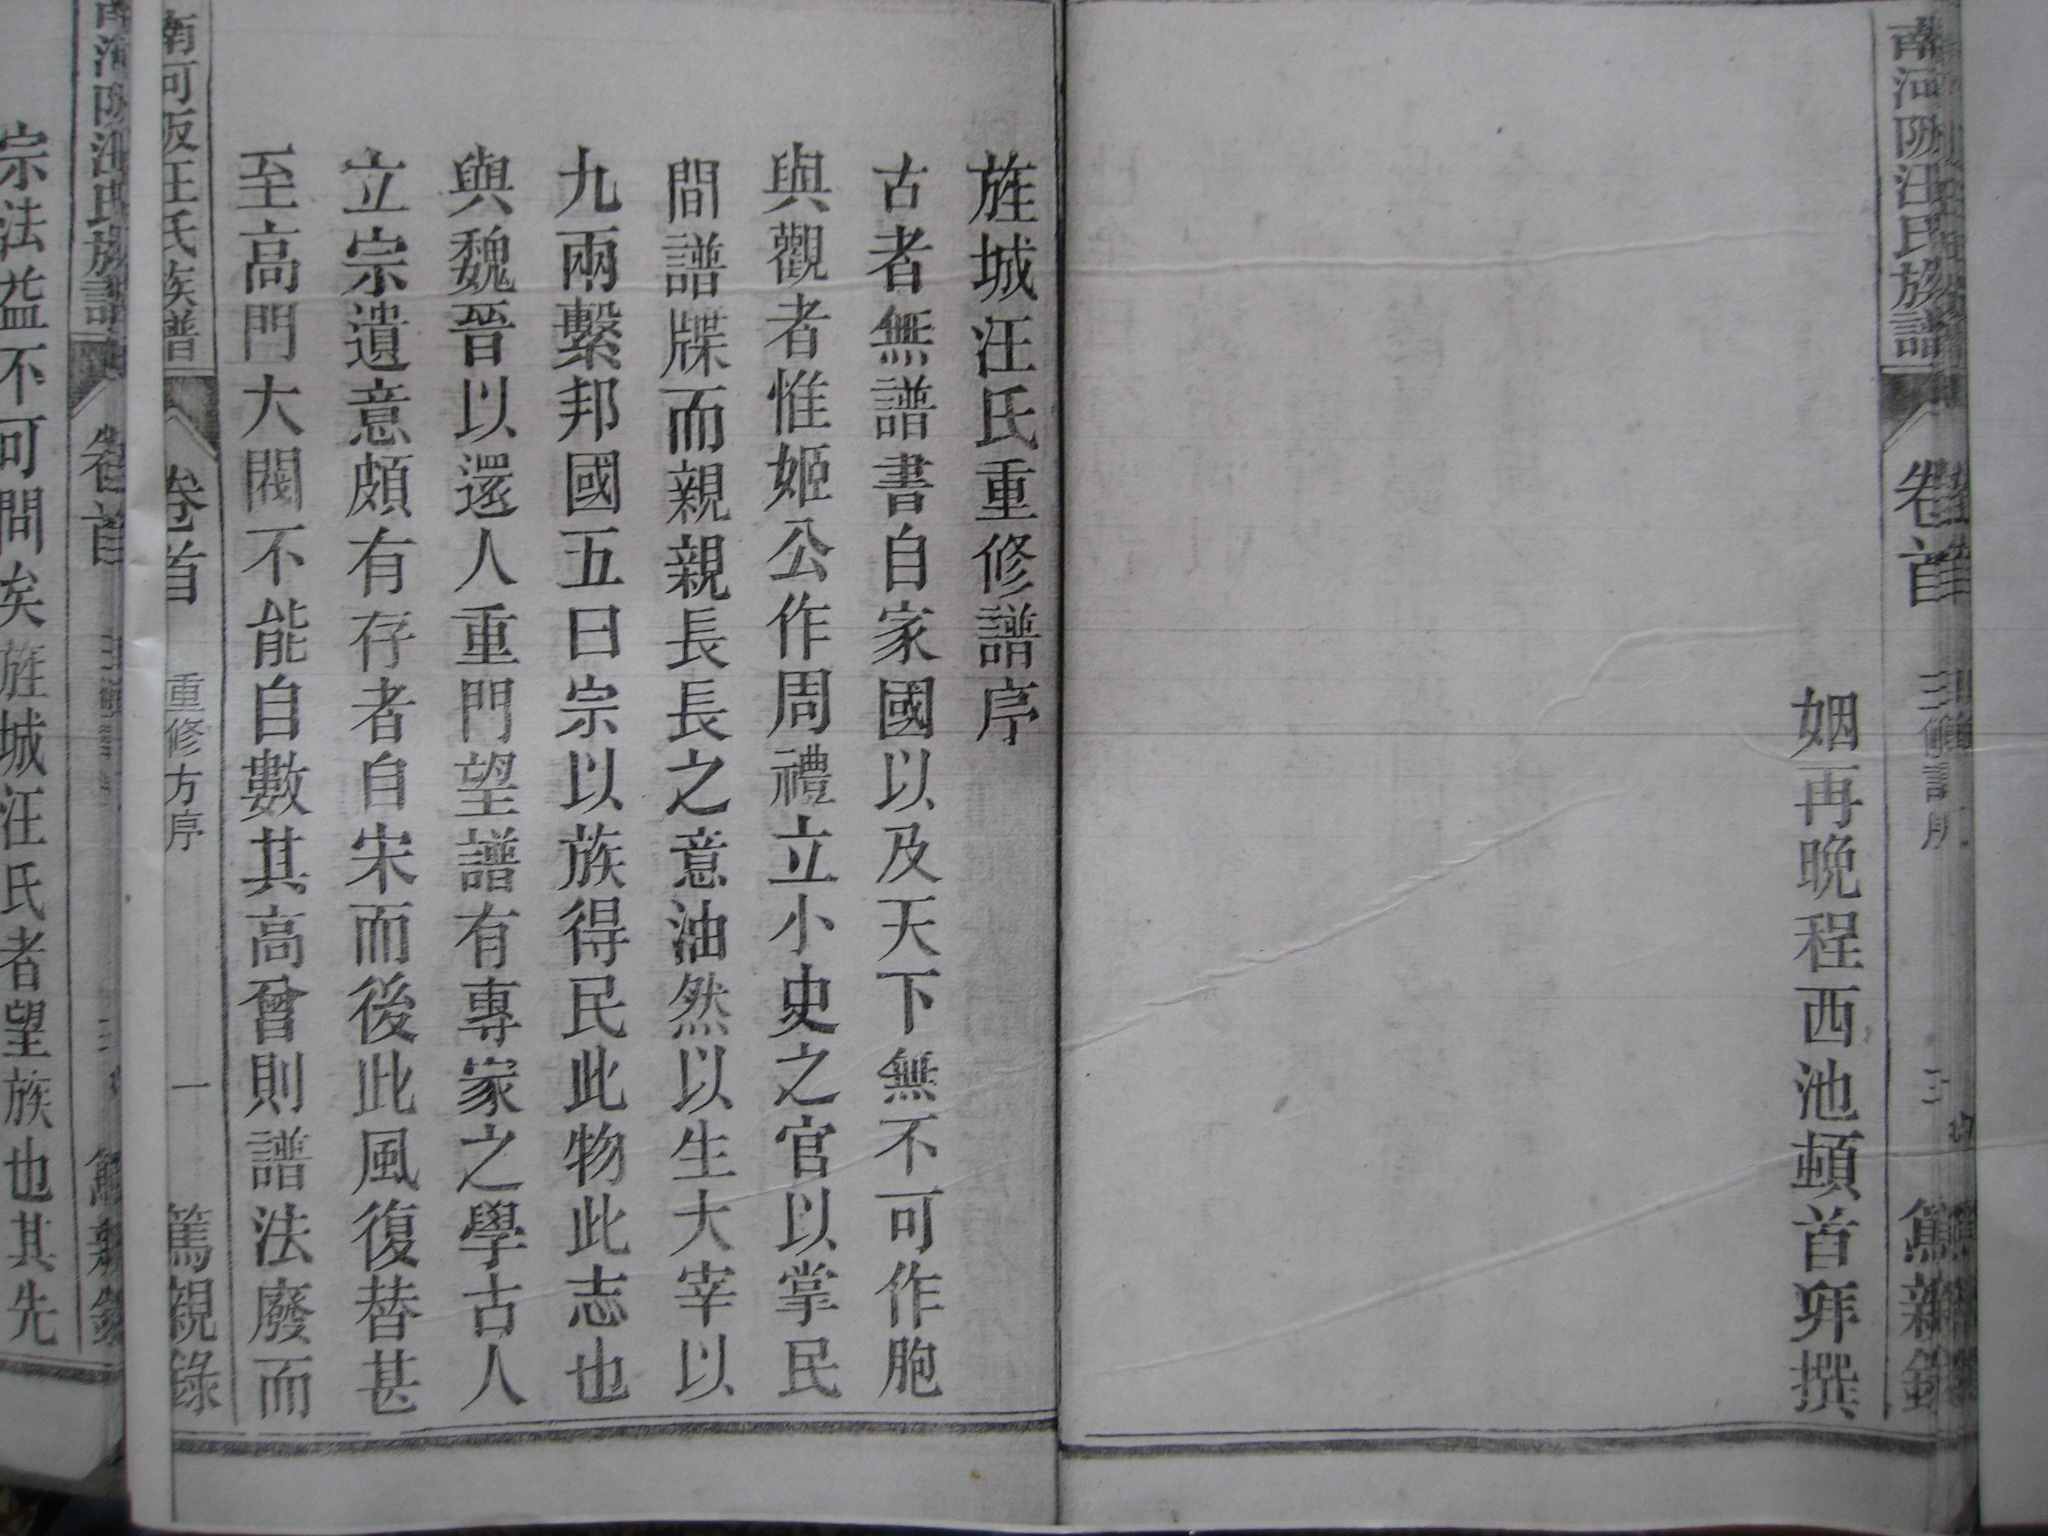 南河阪汪氏族譜 卷首
姻再晚程西池頓首拜撰
旌城汪氏重修譜序
古者無譜書自家國以及天下無不可作胞
與觀者惟姬公作周禮立小史之官以掌民
間譜牒而親親長長之意油然以生大宰以
九兩繫邦國五曰宗以族得民此物此志也
與魏晉以還人重門望譜有專家之學古人
立宗遺意頗有存者自宋而後此風復替甚
至高門大閥不能自數其高曾則譜法廢而
南河阪汪氏族譜 卷首 重修方序 一 篤親錄
宗法益不可問矣旌城汪氏者望族也其先